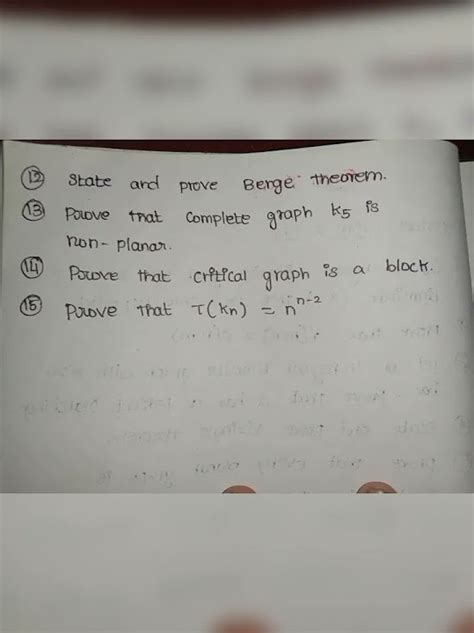 12 State and prove Berge theorem.
13 Prove that complete graph K5 is
non-planar.
14 Prove that critical graph is a block.
15 Prove that T(Kn) = n^n-2